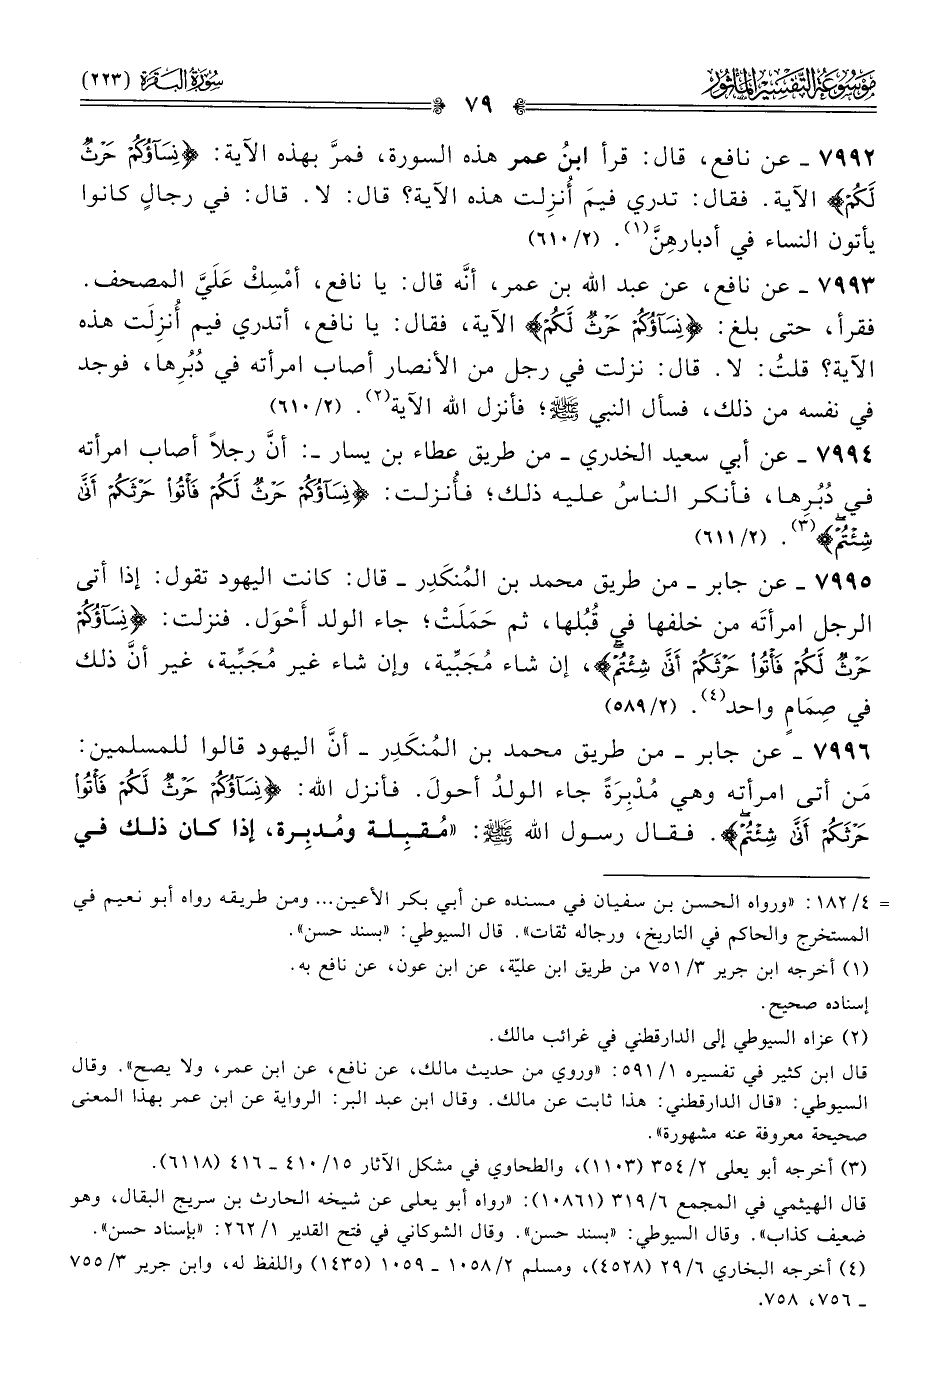 موسوعة التفسير المأثور
سورة البقرة (٢٢٣)
٧٩
٧٩٩٢ ـ عن نافع، قال: قرأ ابنُ عمر هذه السورة، فمرَّ بهذه الآية: ﴿نِسَآؤُكُمْ حَرْثٌ
لَّكُمْ﴾ الآية. فقال: تدري فيمَ أُنزِلت هذه الآية؟ قال: لا. قال: في رجالٍ كانوا
يأتون النساء في أدبارهِنَّ(١). (٦١٠/٢)
٧٩٩٣ ـ عن نافع، عن عبد الله بن عمر، أنَّه قال: يا نافع، أمْسِكْ عَلَيَّ المصحف.
فقرأ، حتى بلغ: ﴿نِسَآؤُكُمْ حَرْثٌ لَّكُمْ﴾ الآية، فقال: يا نافع، أتدري فيم أُنزِلَت هذه
الآية؟ قلتُ: لا. قال: نزلت في رجل من الأنصار أصاب امرأته في دُبُرِها، فوجد
في نفسه من ذلك، فسأل النبي ﷺ؛ فأنزل الله الآية(٢). (٦١٠/٢)
٧٩٩٤ ـ عن أبي سعيد الخدري ـ من طريق عطاء بن يسار ـ: أنَّ رجلاً أصاب امرأته
في دُبُرِها، فأنكر الناسُ عليه ذلك؛ فأُنزلت: ﴿نِسَآؤُكُمْ حَرْثٌ لَّكُمْ فَأْتُوا۟ حَرْثَكُمْ أَنَّىٰ
شِئْتُمْۖ﴾(٣). (٦١١/٢)
٧٩٩٥ ـ عن جابر ـ من طريق محمد بن المُنكَدِر ـ قال: كانت اليهود تقول: إذا أتى
الرجل امرأتَه من خلفها في قُبُلها، ثم حَمَلَتْ؛ جاء الولد أَحْوَل. فنزلت: ﴿نِسَآؤُكُمْ
حَرْثٌ لَّكُمْ فَأْتُوا۟ حَرْثَكُمْ أَنَّىٰ شِئْتُمْۖ﴾، إن شاء مُجَبِّية، وإن شاء غير مُجَبِّية، غير أنَّ ذلك
في صِمَامٍ واحد(٤). (٥٨٩/٢)
٧٩٩٦ ـ عن جابر ـ من طريق محمد بن المُنكَدِر ـ أنَّ اليهود قالوا للمسلمين:
مَن أتى امرأته وهي مُدْبِرَةً جاء الولدُ أحولَ. فأنزل الله: ﴿نِسَآؤُكُمْ حَرْثٌ لَّكُمْ فَأْتُوا۟
حَرْثَكُمْ أَنَّىٰ شِئْتُمْۖ﴾. فقال رسول الله ﷺ: «مُقبِلة ومُدبِرة، إذا كان ذلك في
= ١٨٢/٤: «ورواه الحسن بن سفيان في مسنده عن أبي بكر الأعين... ومن طريقه رواه أبو نعيم في
المستخرج والحاكم في التاريخ، ورجاله ثقات». قال السيوطي: «بسند حسن».
(١) أخرجه ابن جرير ٣/ ٧٥١ من طريق ابن عليّة، عن ابن عون، عن نافع به.
إسناده صحيح.
(٢) عزاه السيوطي إلى الدارقطني في غرائب مالك.
قال ابن كثير في تفسيره ١/ ٥٩١: «وروي من حديث مالك، عن نافع، عن ابن عمر، ولا يصح». وقال
السيوطي: «قال الدارقطني: هذا ثابت عن مالك. وقال ابن عبد البر: الرواية عن ابن عمر بهذا المعنى
صحيحة معروفة عنه مشهورة».
(٣) أخرجه أبو يعلى ٢/ ٣٥٤ (١١٠٣)، والطحاوي في مشكل الآثار ١٥/ ٤١٠ ـ ٤١٦ (٦١١٨).
قال الهيثمي في المجمع ٦/ ٣١٩ (١٠٨٦١): «رواه أبو يعلى عن شيخه الحارث بن سريج البقال، وهو
ضعيف كذاب». وقال السيوطي: «بسند حسن». وقال الشوكاني في فتح القدير ١/ ٢٦٢: «بإسناد حسن».
(٤) أخرجه البخاري ٦/ ٢٩ (٤٥٢٨)، ومسلم ٢/ ١٠٥٨ ـ ١٠٥٩ (١٤٣٥) واللفظ له، وابن جرير ٣/ ٧٥٥
ـ ٧٥٦، ٧٥٨.